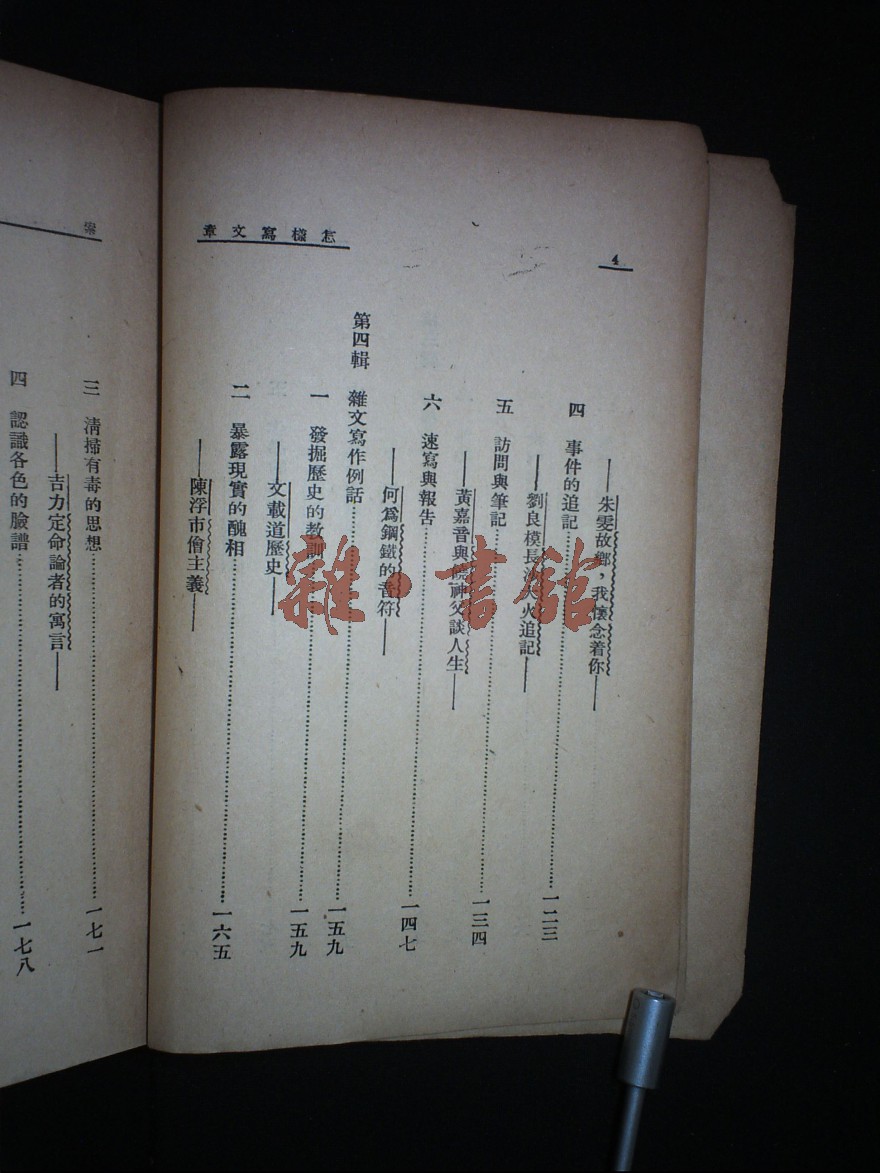 怎樣寫文章
4
——朱雯故鄉，我懷念着你——
四　事件的追記……一二三
——劉良模長沙大火追記——
五　訪問與筆記……一三四
——黃嘉音與饒神父談人生——
六　速寫與報告……一四七
——何爲鋼鐵的音符——
第四輯　雜文寫作例話……一五九
一　發掘歷史的教訓……一五九
——文載道歷史——
二　暴露現實的醜相……一六五
——陳浮市儈主義——
三　清掃有毒的思想……一七一
——吉力定命論者的寓言——
四　認識各色的臉譜……一七八
雜·書館